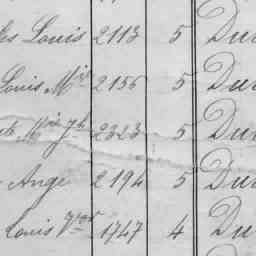 Louis 2113 5 Du
Louis M^ie 2156 5 Du
M^ie J^h 2323 5 Du
Ange 2194 5 Du
Louis V^tor 1747 4 Du